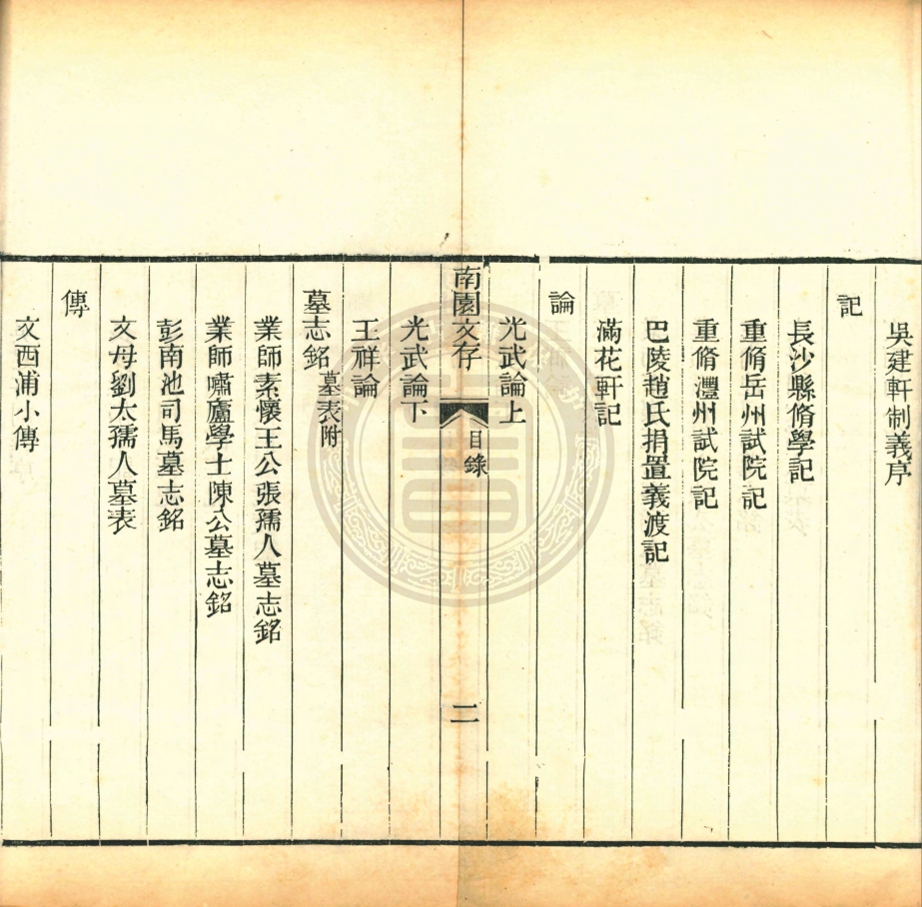 吳建軒制義序
記
長沙縣脩學記
重脩岳州試院記
重脩灃州試院記
巴陵趙氏捐置義渡記
滿花軒記
論
光武論上
南園文存 目錄 二
光武論下
王祥論
墓志銘 墓表附
業師素懷王公張孺人墓志銘
業師嘯廬學士陳公墓志銘
彭南池司馬墓志銘
文母劉太孺人墓表
傳
文西浦小傳